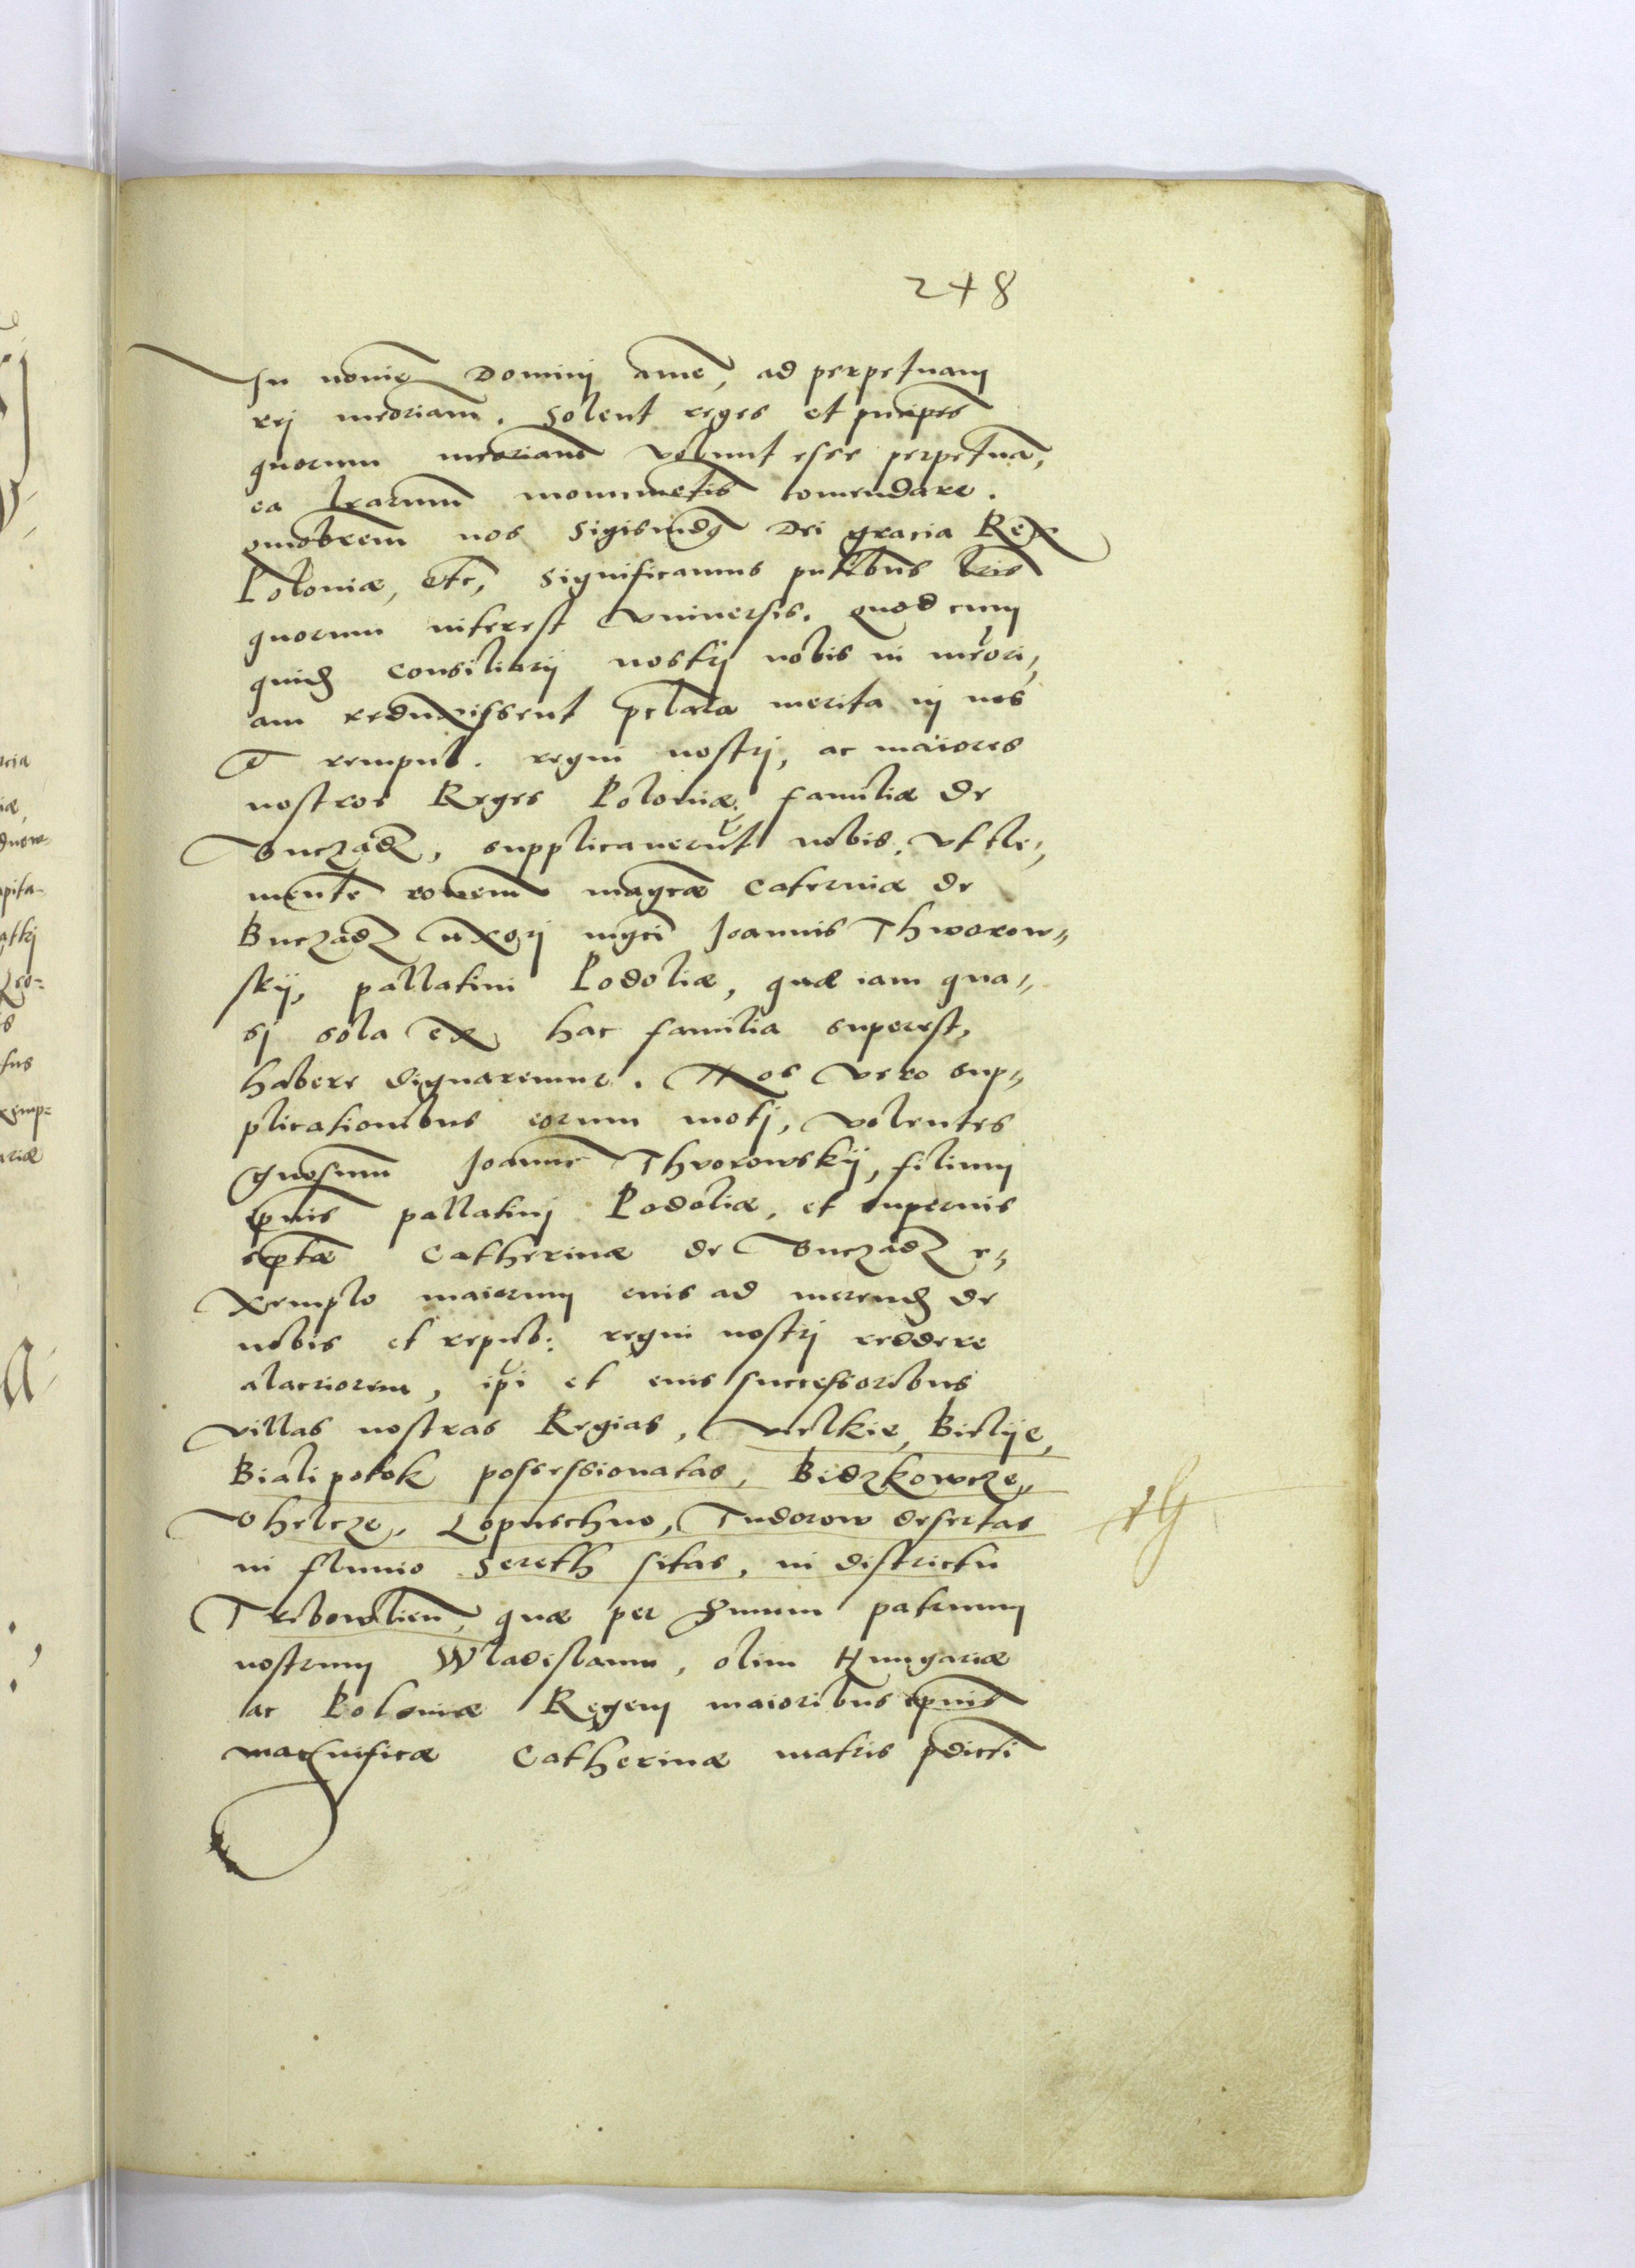 248
In nomīe Dominj amē, ad perpetuam
rej meōriam. Solent reges et prīcipes
quorum meōriam volunt esse perpetuā,
ea lrārum monumētis comendare.
quiobrem nos Sigismūdꝯ Dei gracia Rex
Poloniæ, etc, significamus pn̄tibus lrīs
quorum interest vniversis. quod cum
quid consiliarij nostrj nobis in meōri,
am reduxissent preclara merita in nos
et rempub. regni nostrj, ac maiores
nostros Reges Poloniæ, familiæ de
Buczadz, supplicaverūt nobis. vt cle,
mentē rōnem magcæ Caterniæ de
Buczadz uxorj mgci Joannis Thworow„
skij, pallatini Podoliæ, quæ iam qua„
sj sola ex hac familia superest,
habere dignaremur. Nos vero sup„
plicationibus eorum motj, volentes
gnosum Joannē Thworowskij, filium
ipius pallatinj Podoliæ, et supernis
criptæ Catherinæ de Buczadz e„
xemplo maiorum eius ad merend de
nobis et repub: regni nostrj reddere
alacriorem, ipi et eius successoribus
villas nostras Regias, vielkie, Bielije,
Bialipotok possessionatas, Bidzkowcze,
Oheleze, Lopuschno, Tudorow desertas
in fluuio Sereth sitas, in districtu
Tribowlien, quæ per Smum patruum
nostrum Wladislaum, olim Hungariæ
ac Poloniæ Regem maioribus ipius
magnificæ Catherinæ matris pdicti